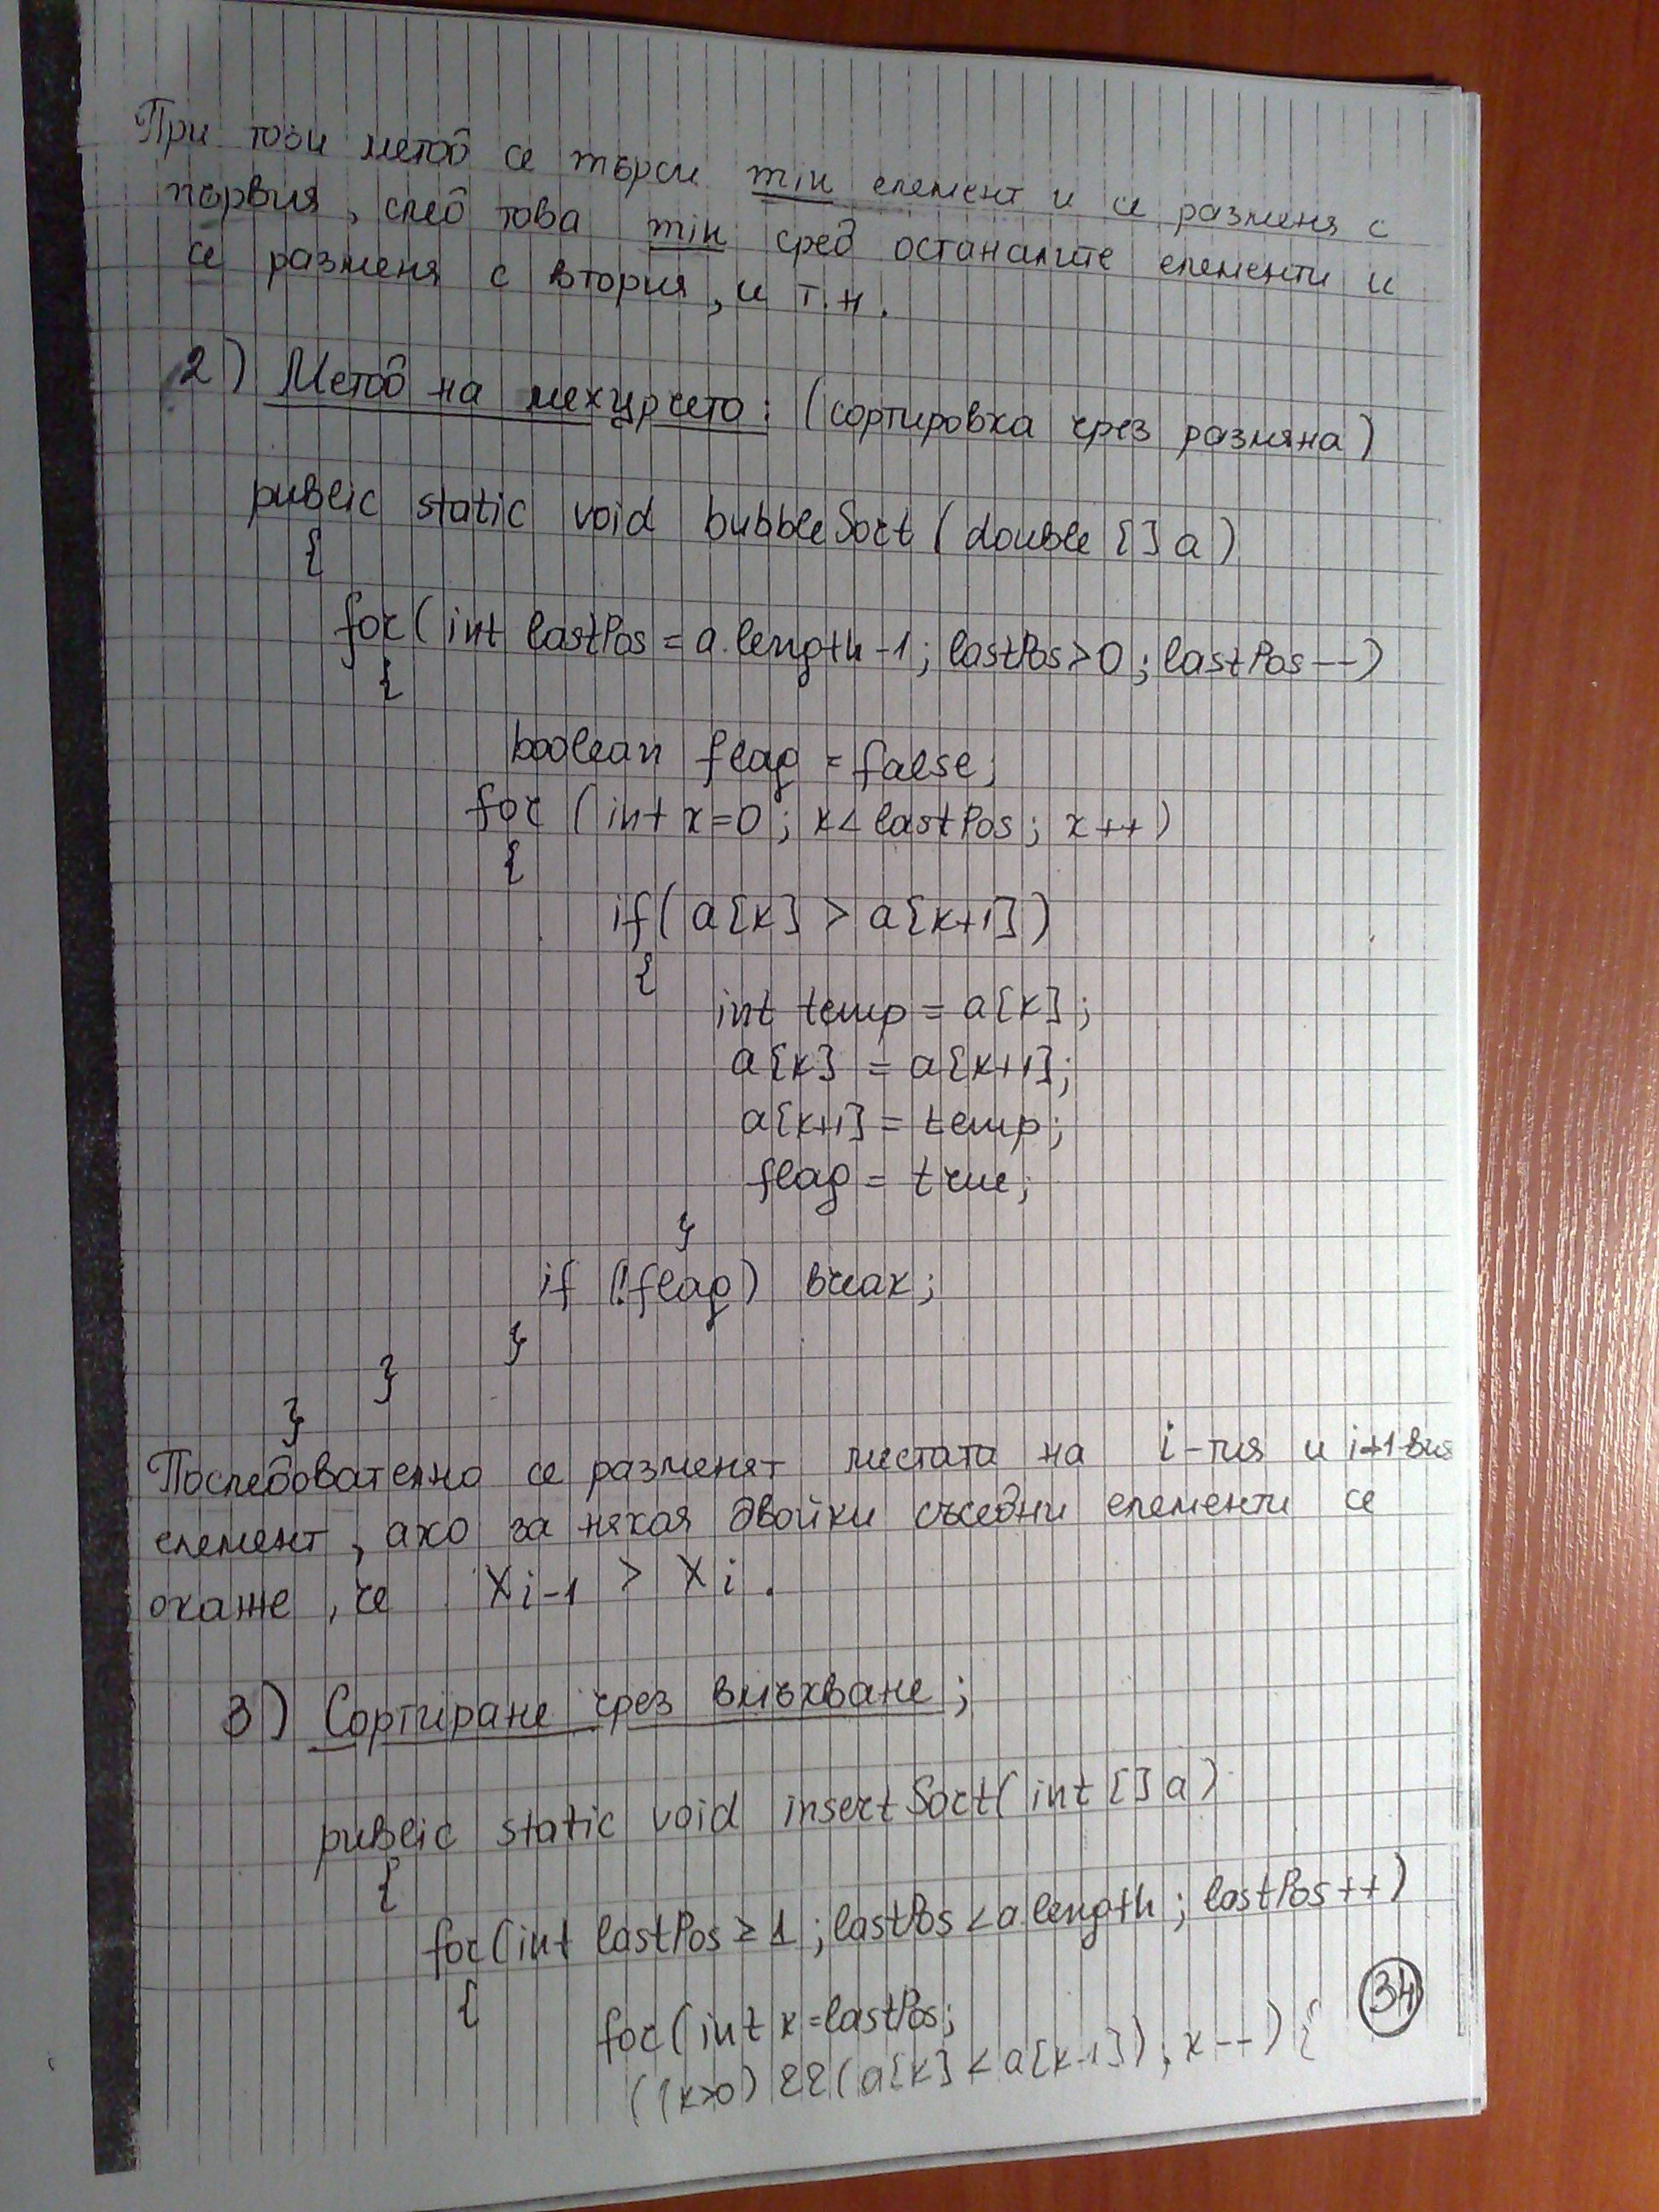 При този метод се търси min елемент и се разменя с
първия, след това min сред останалите елементи и
се разменя с втория, и т.н.
2) Метод на мехурчето: (сортировка чрез размяна)
public static void bubbleSort (double [] a)
{
for (int lastPos = a.length -1; lastPos > 0; lastPos --)
{
boolean flag = false;
for (int k=0; k < lastPos; k++)
{
if (a[k] > a[k+1])
{
int temp = a[k];
a[k] = a[k+1];
a[k+1] = temp;
flag = true;
}
if (!flag) break;
}
}
}
Последователно се разменят местата на i-тия и i+1-вия
елемент, ако за някоя двойки съседни елементи се
окаже, че Xi-1 > Xi.
3) Сортиране чрез вмъкване;
public static void insertSort (int [] a)
{
for (int lastPos ≥ 1; lastPos < a.length; lastPos ++)
{
for (int k = lastPos;
((k>0) && (a[k] < a[k-1]); k--) {
34